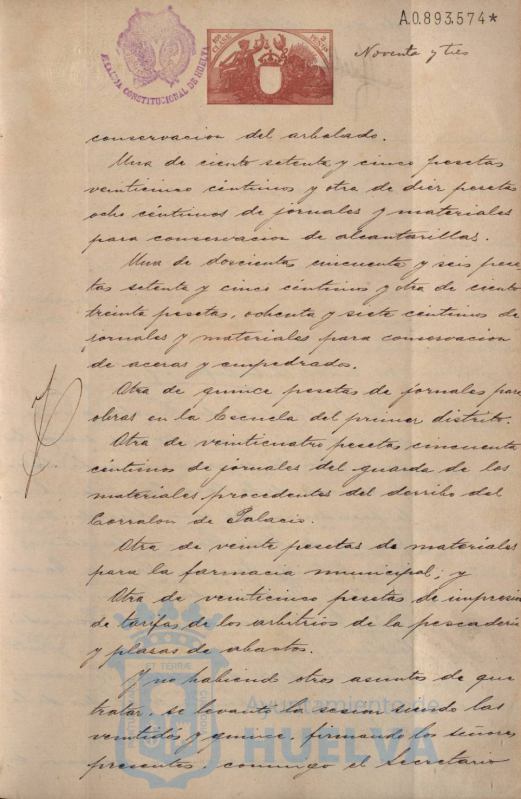 A.0.893.574*
ALCALDIA CONSTITUCIONAL DE HUELVA
Noventa y tres
conservacion del arbolado.
Una de ciento setenta y cinco pesetas
veinticinco céntimos y otra de diez pesetas
ocho céntimos de jornales y materiales
para conservacion de alcantarillas.
Una de doscientas cincuenta y seis pese
tas setenta y cinco céntimos y otra de ciento
treinta pesetas, ochenta y siete céntimos de
jornales y materiales para conservacion
de aceras y empedrados.
Otra de quince pesetas de jornales para
obras en la Escuela del primer distrito.
Otra de veinticuatro pesetas cincuenta
céntimos de jornales del guarda de los
materiales procedentes del derribo del
Corralon de Palacio.
Otra de veinte pesetas de materiales
para la farmacia municipal; y
Otra de veinticinco pesetas de impresion
de tarifas de los arbitrios de la pescaderia
y plazas de abastos.
Y no habiendo otros asuntos de que
tratar, se levantó la sesion siendo las
veintidós y quince, firmando los señores
presentes, conmigo el secretario
ET TERRÆ
Ayuntamiento de
HUELVA